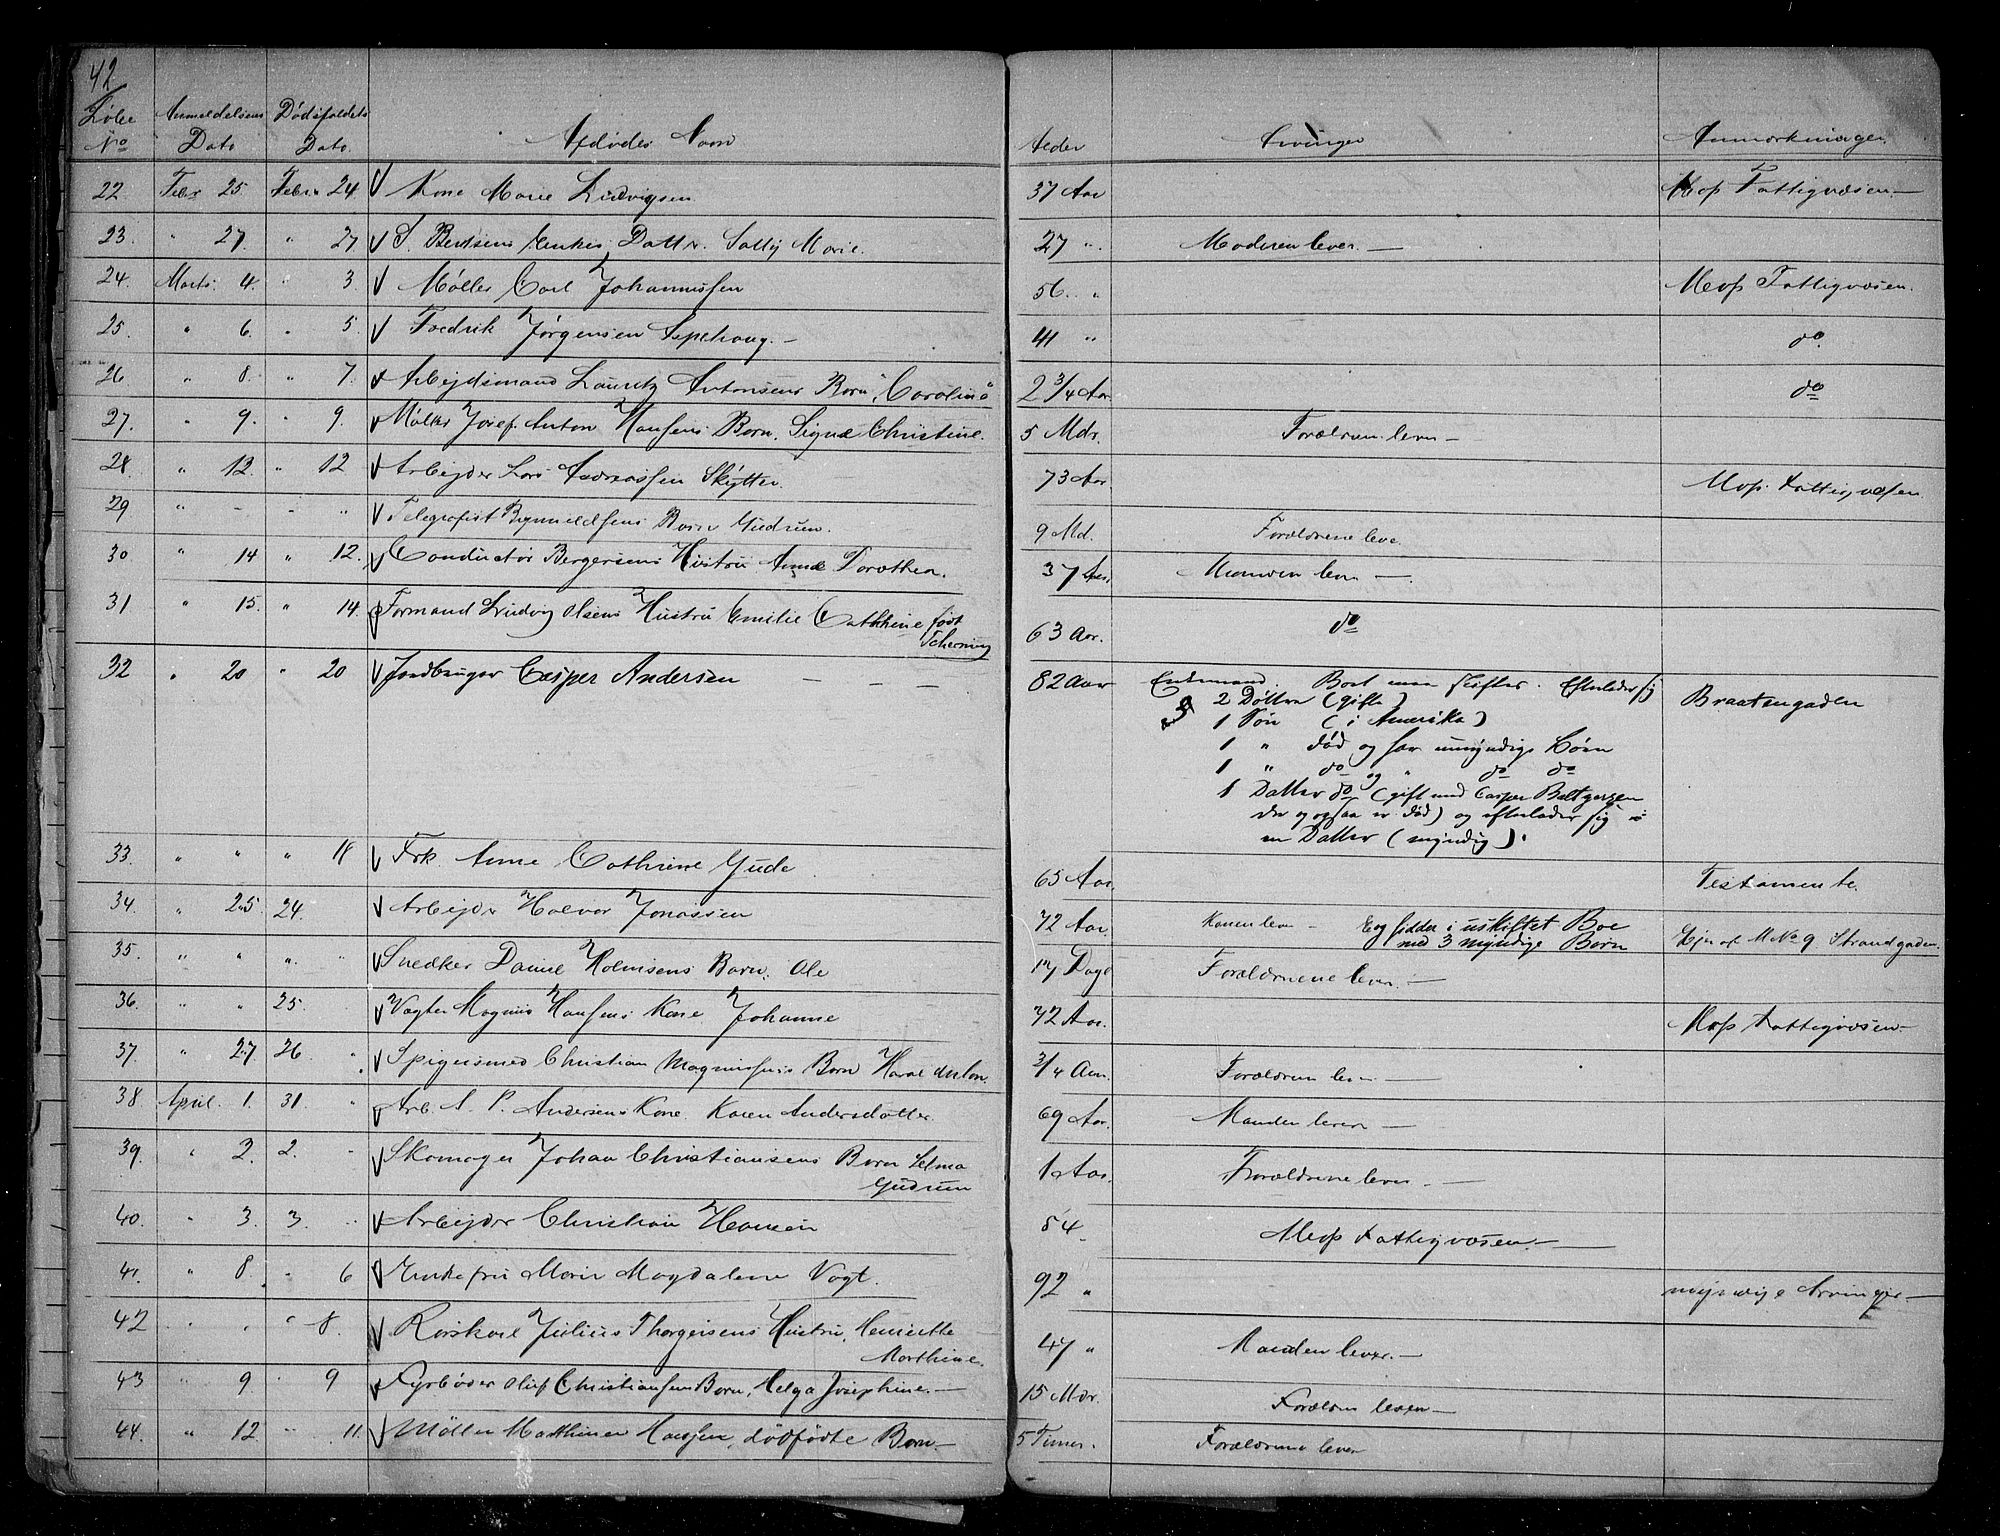 42
Løbe No Anmeldelsens Dato Dødsfaldets Dato. Afdødes Navn Alder Arvinger Anmærkninger.
22. Febr 25 Febr 24 Kone Marie Ludvigsen 37 Aar Mos Fattigvæsen
23. " 27 " 27 S. Bentsens Enkes Datter. Marie. 27 " Moderen lever. —
24. Marts 4. " 3. Møller Carl Johannessen 56 " Mos Fattigvæsen.
25. " 6. " 5. Fredrik Jørgensen — 41 " do
26 " 8. " 7. Arbejdsmand Lauritz Antonsens Barn, "Caroline" 2 3/4 Aar do
27. " 9. " 9. Møller Josef Anton Hansens Barn. Signe Christine. 5 Mdr. Forældrene lever —
28. " 12. " 12 Arbejder Lars Andreassen Skÿtter. 73 Aar Mos. Fattigvæsen
29 " - - " Telegrafist Barn Gudrun. 9 Md. Forældrene leve.
30 " 14 " 12. Conductør Bergersens Hustru Anne Dorothea. 37 Aar. Manden lever —.
31 " 15. " 14. Formand Ludvig Olsens Hustru Emilie Cathrine født
Scherning 63 Aar. do
32 " 20 " 20 Jordbruger Casper Andersen — — — 82 Aar Enkemand. Boet maa skiftes. Efterlader sig Braatengaden
2 Døttre (gifte)
1 Søn (i Amerika)
1 " død og har umyndige Børn
1 " do og " do do
1 Datter do (gift med Casper
der ogsaa er død) og efterlader sig
en Datter (myndig).
33. " " " 18 Frk. Anne Cathrine Gude 65 Aar. Testamente.
34. " 25. 24. Arbejder Halvor Jonassen 72 Aar. Konen lever — Eog sidder i uskiftet Boe
med 3 myndige Børn Ejer af M No 9 Strandgaden.
35. " " " " Snedker Daniel Holmsens Barn: Ole 17 Dage Forældrene lever. —
36. " " 25. Vagter Magnus Hansens Kone Johanne 72 Aar. Mos Fattigvæsen —
37. " 27 26. " Spigersmed Christian Magnussens Barn Haral Anton. 3/4 Aar. Forældrene lever —
38. April. 1. 31. " Arb. A. P. Andersens Kone. Karen Andersdatter. 69 Aar. Manden lever —
39. " 2. 2. " Skomager Johan Christiansens Barn Selma
Gudrun 1 Aar. Forældrene lever. —
40. " 3. 3. " Arbejder Christian Hansen 54 Mos Fattigvæsen. —
41. " 8. " 6 Enkefru Marie Magdalene Vogt. 92 " myndige Arvinger —
42 " " " 8. Rorskarl Julius Thorgersens Hustru, Henriette
Marthine. 47 " Manden lever. —
43 " 9 " 9 Fyrbøder Oluf Christiansens Barn, Helga Josephine. — 15 Mdr. Forældrene lever —
44. " 12 " 11. Møller Marthiner Hansen, dødfødte Barn — 5 Timer. Forældrene lever